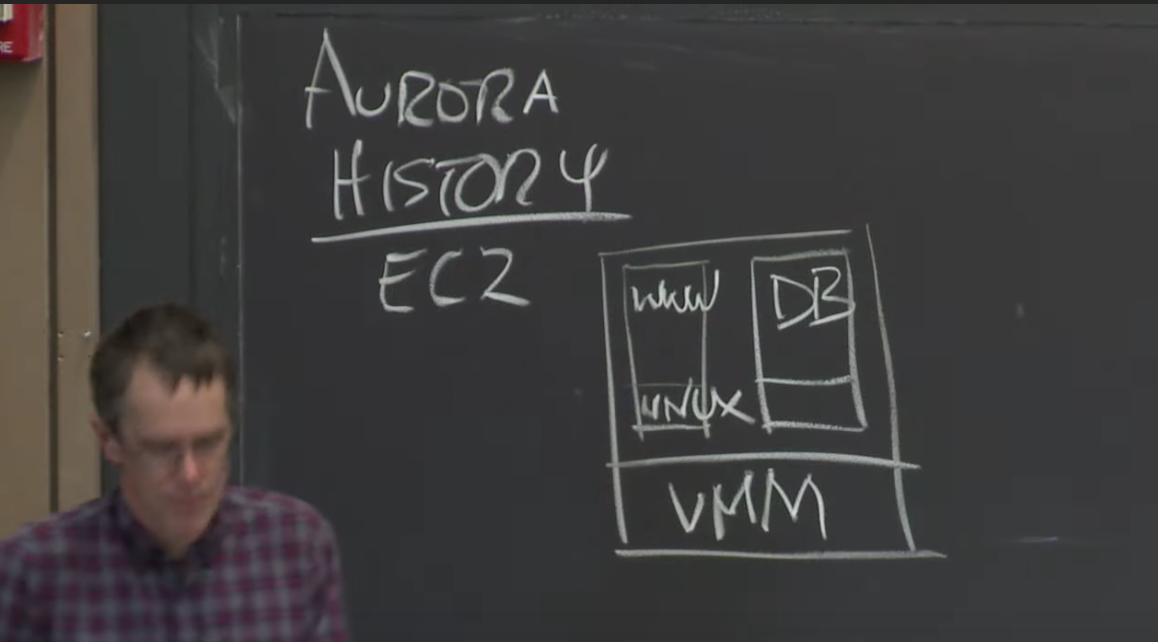 RE
AURORA
HISTORY
EC2
WWW
DB
LINUX
VMM